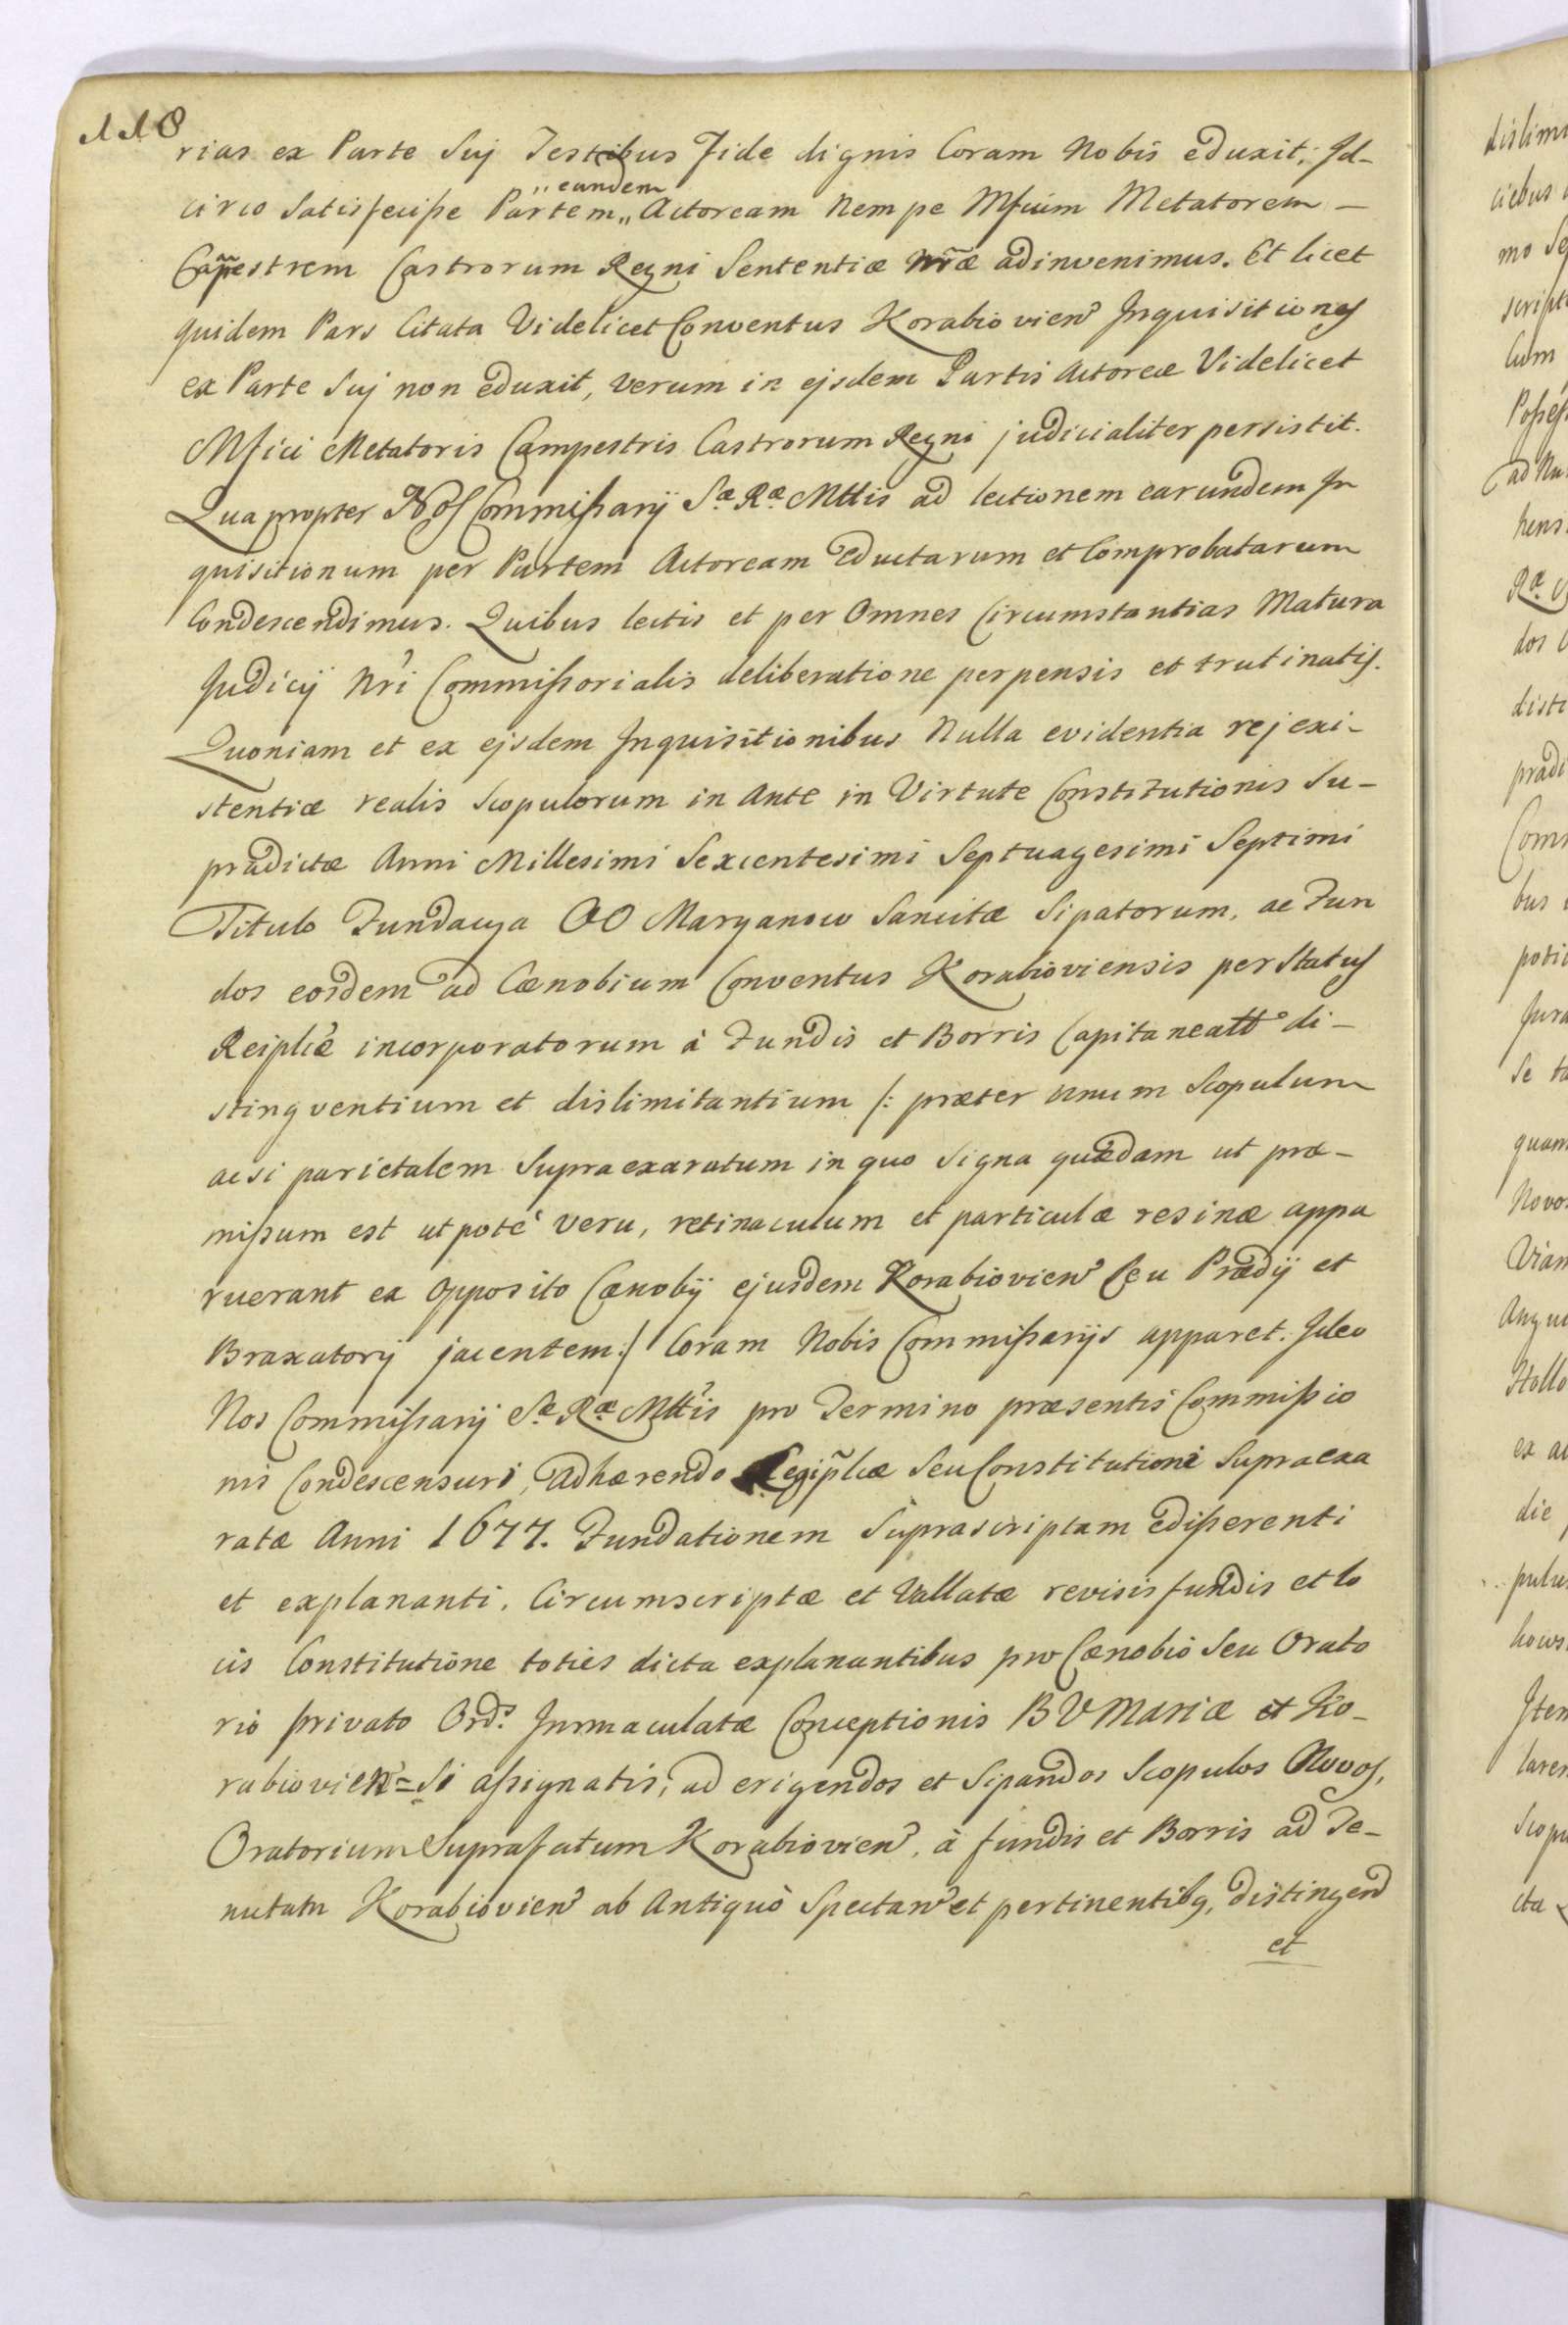 118
rias ex Parte Suj Testibus Fide dignis Coram Nobis eduxit; Id-
circo Satisfecisse Partem „eandem„ Actoream Nempe Mficum Metatorem —
Cam̃pestrem Castrorum Regni Sententiæ nr̃æ adinvenimus. Et licet
quidem Pars Citata Videlicet Conventus Korabiovien̉ Inquisitiones
ex Parte Suj non eduxit, verum in ejsdem Partis Actoreæ Videlicet
Mfici Metatoris Campestris Castrorum Regni judicialiter persistit.
Quapropter Nos Commissarij Sæ Ræ Mttis ad lectionem earundem In
quisitionum per Partem Actoream eductarum et Comprobatarum
Condescendimus. Quibus lectis et per Omnes Circumstantias Matura
Judicij Nr̉i Commissorialis deliberatione perpensis et trutinatis.
Quoniam et ex ejsdem Inquisitionibus Nulla evidentia rej exi-
stentiæ realis Scopulorum in Ante in Virtute Constitutionis Su-
prædictæ Anni Millesimi Sexcentesimi Septuagesimi Septimi
Titulo Fundacya OO Maryanow Sancitæ Sipatorum, ac Fun
dos eosdem ad Cænobium Conventus Korabioviensis per Status
Reiplcæ incorporatorum à Fundis et Borris Capitaneatt° di-
stingventium et dislimitantium /: præter unum Scopulum
acsi parietalem Supraexaratum in quo Signa quædam ut præ-
missum est utpote veru, retinaculum et particulæ resinæ appa
ruerant ex Opposito Cænobij ejusdem Korabiovien̉ Seu Prædij et
Braxatorij jacentem:/ Coram Nobis Commissarijs apparet. Ideo
Nos Commissarij Sæ Ræ Mttis pro Termino præsentis Commissio
nis Condescensuri, Adhærendo Legi Rplcæ Seu Constitutioni Supraexa
ratæ Anni 1677. Fundationem Suprascriptam edisserenti
et explananti, Circumscriptæ et Vallatæ revisis fundis et lo
cis Constitutione toties dicta explanantibus pro Cænobio Seu Orato
rio privato Ord: Immaculatæ Conceptionis BVMariæ et Ko-
rabiovien̉=si assignatis, ad erigendos et Sipandos Scopulos Novos,
Oratorium Suprafatum Korabiovien̉, à fundis et Borris ad Te-
nutam Korabiovien̉ ab Antiquo Spectan̉ et pertinentibg, distingend
et